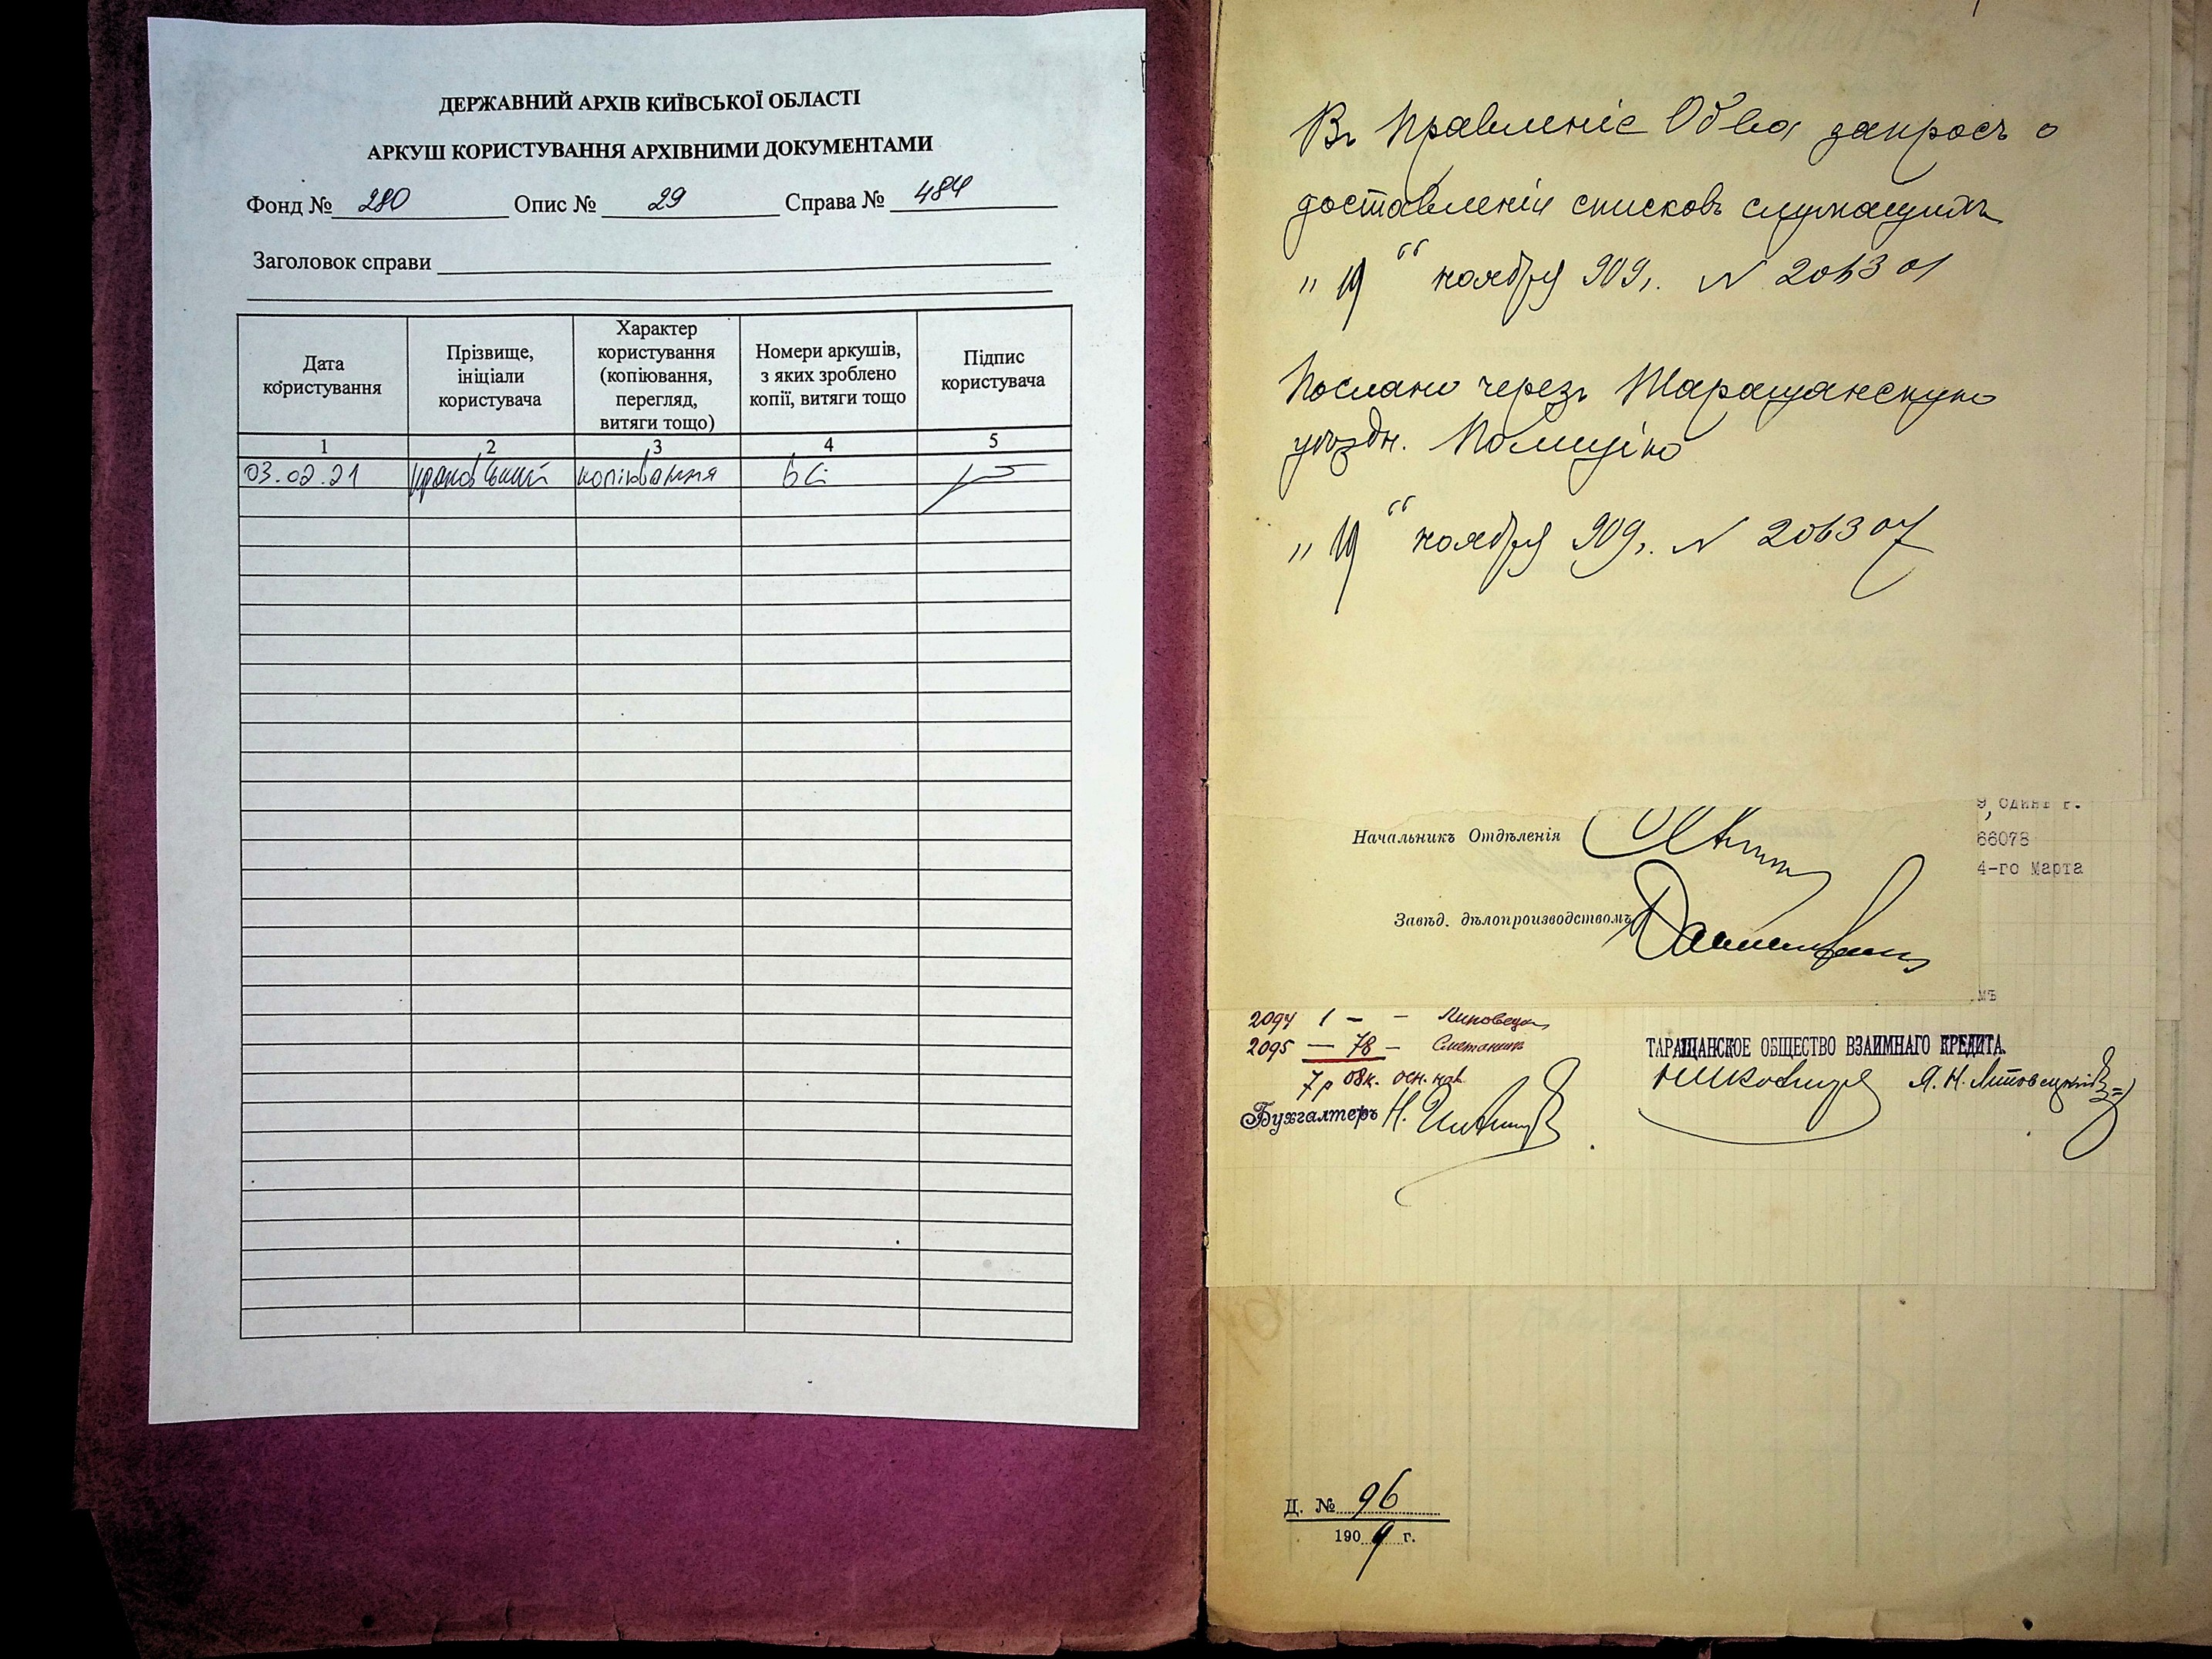 ДЕРЖАВНИЙ АРХІВ КИЇВСЬКОЇ ОБЛАСТІ
АРКУШ КОРИСТУВАННЯ АРХІВНИМИ ДОКУМЕНТАМИ
Фонд № 280 Опис № 29 Справа № 484
Заголовок справи
Дата користування
Прізвище, ініціали користувача
Характер користування (копіювання, перегляд, витяги тощо)
Номери аркушів, з яких зроблено копії, витяги тощо
Підпис користувача
1 2 3 4 5
03.02.21 копіювання всі
Въ Правленіе Об-ва запросъ о
доставленіи списковъ служащихъ
„19“ ноября 909 г. N
Послано черезъ Таращанскую
уѣздн. Полицію
„19“ ноября 909 г. N
9, одинъ г.
66078
4-го Марта
Начальникъ Отдѣленія
Завѣд. дѣлопроизводствомъ
мъ
2094 1 — —
2095 — 78 —
7 р 08к. осн. кап.
ТАРАЩАНСКОЕ ОБЩЕСТВО ВЗАИМНАГО КРЕДИТА.
Бухгалтеръ Н.
Д. № 96
1909 г.